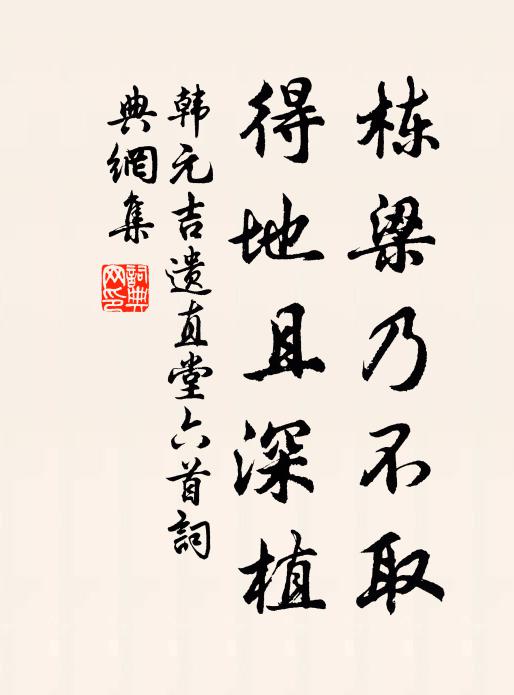 栋梁乃不取
得地且深植
韩元吉遗直堂六首詞
典網集
詞典网印